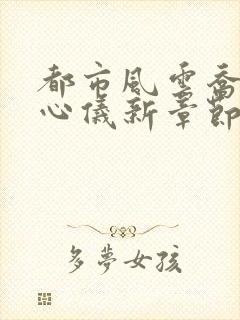 都市風雲喬
心儀新章節
多夢女孩